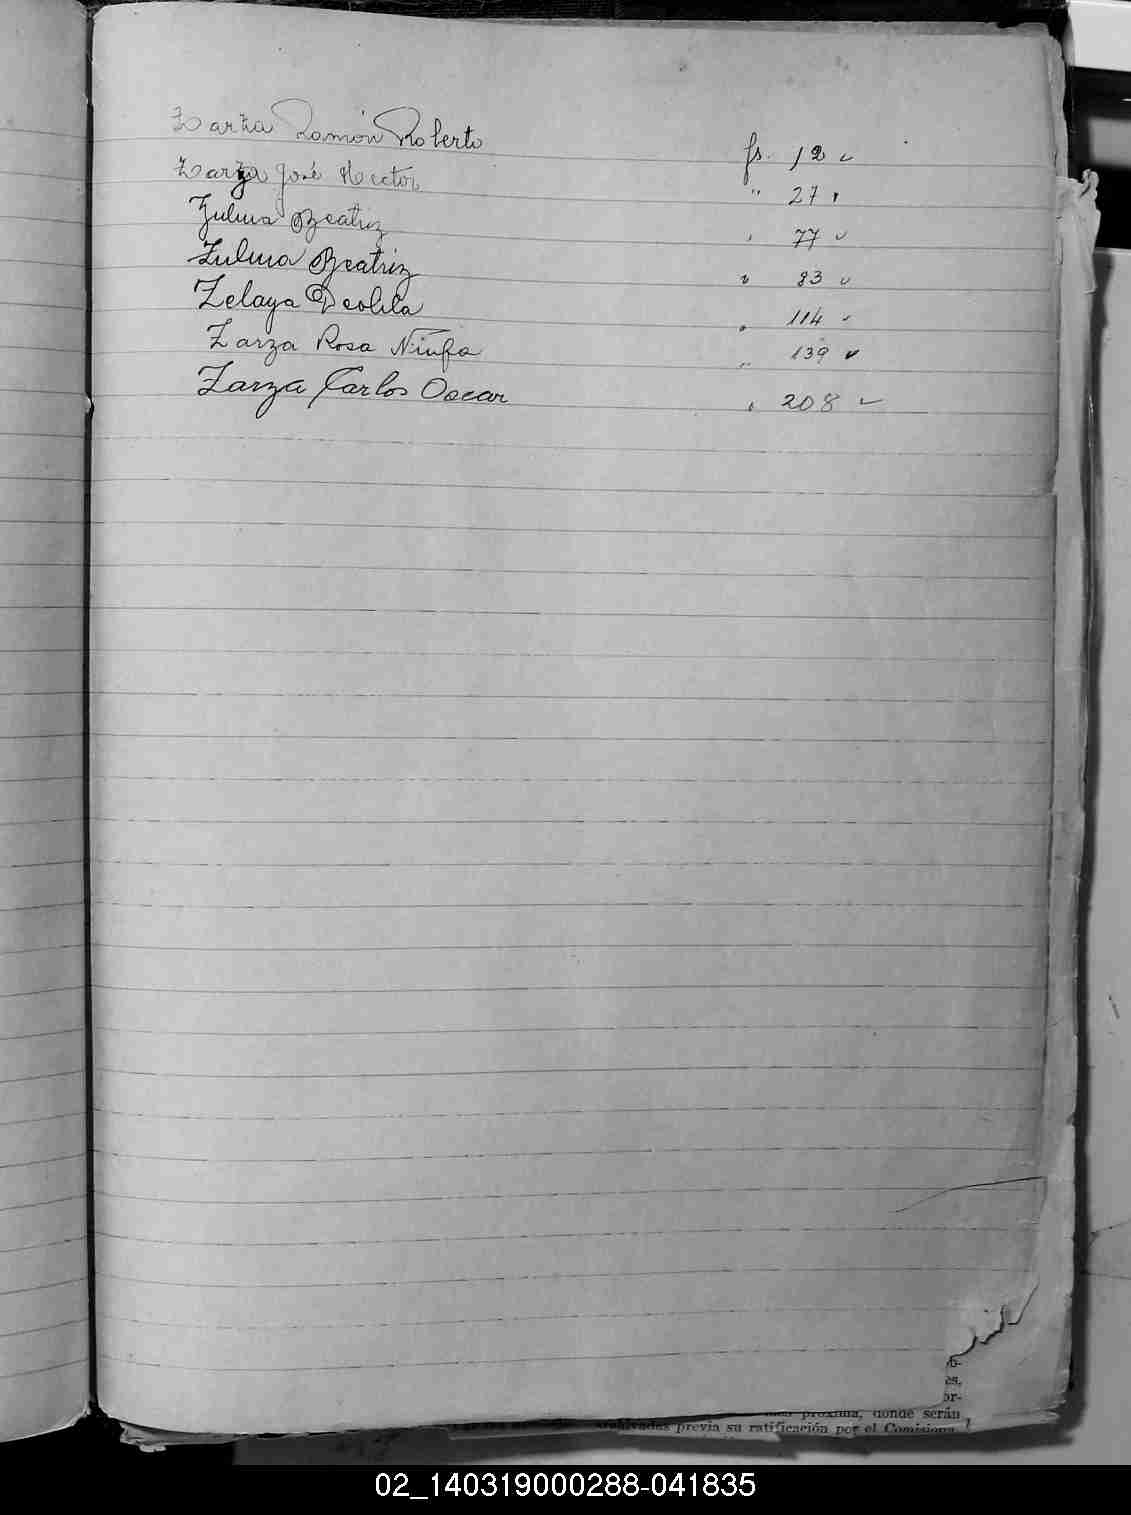 Zarza Ramón Roberto fs. 12 ✓
Zarza José Hector " 27 ✓
Zulma Beatriz " 77 ✓
Zulma Beatriz " 83 ✓
Zelaya Deolila " 114 ✓
Zarza Rosa Ninfa " 139 ✓
Zarza Carlos Oscar " 208 ✓
próxima, donde serán
archivadas previa su ratificación por el Comisiona
02_140319000288-041835